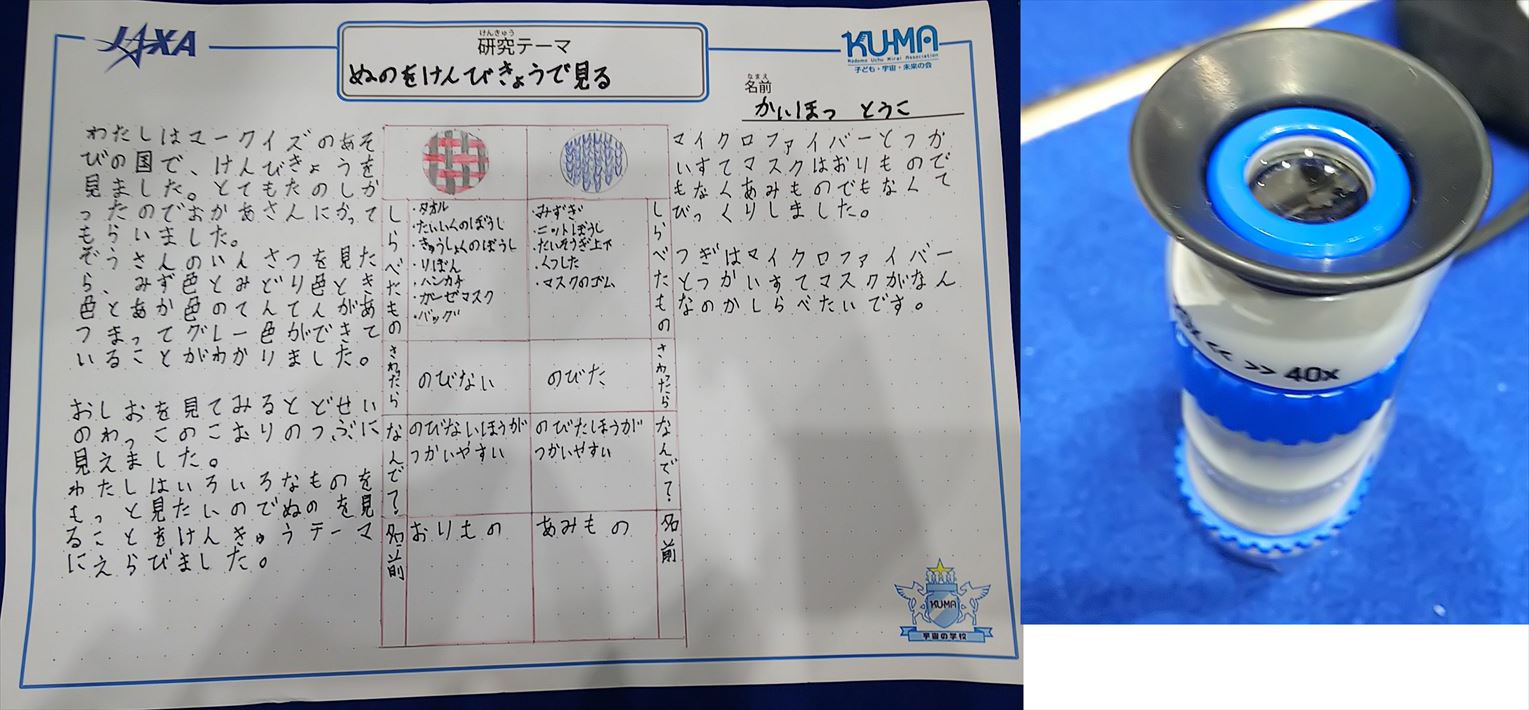 JAXA
けんきゅう
研究テーマ
ぬのをけんびきょうで見る
KU-MA
Kodomo Uchu Mirai Association
子ども・宇宙・未来の会
なまえ
名前
かいほつ とうこ
わたしはマークイズのあそ
びの国で、けんびきょうを
見ました。とてもたのしか
ったのでおかあさんにかって
もらいました。
ぞうさんのいんさつを見た
ら、みず色とみどり色とき
色とあか色のてんてんがあ
つまってグレー色ができて
いることがわかりました。
おしおを見てみるとどせい
のわっこのこおりのつぶに
見えました。
わたしはいろいろなものを
もっと見たいのでぬのを見
ることをけんきゅうテーマ
にえらびました。
しらべたもの
・タオル
・たいいくのぼうし
・きゅうしょくのぼうし
・りぼん
・ハンカチ
・ガーゼマスク
・バッグ
・みずぎ
・ニットぼうし
・たいそうぎ上下
・くつした
・マスクのゴム
しらべたもの
さわったら
のびない
のびた
さわったら
なんで?
のびないほうが
つかいやすい
のびたほうが
つかいやすい
なんで?
名前
おりもの
あみもの
名前
マイクロファイバーとつか
いすてマスクはおりもので
もなくあみものでもなくて
びっくりしました。
つぎはマイクロファイバー
とつかいすてマスクがなん
なのかしらべたいです。
KUMA
宇宙の学校
<< >> 40x